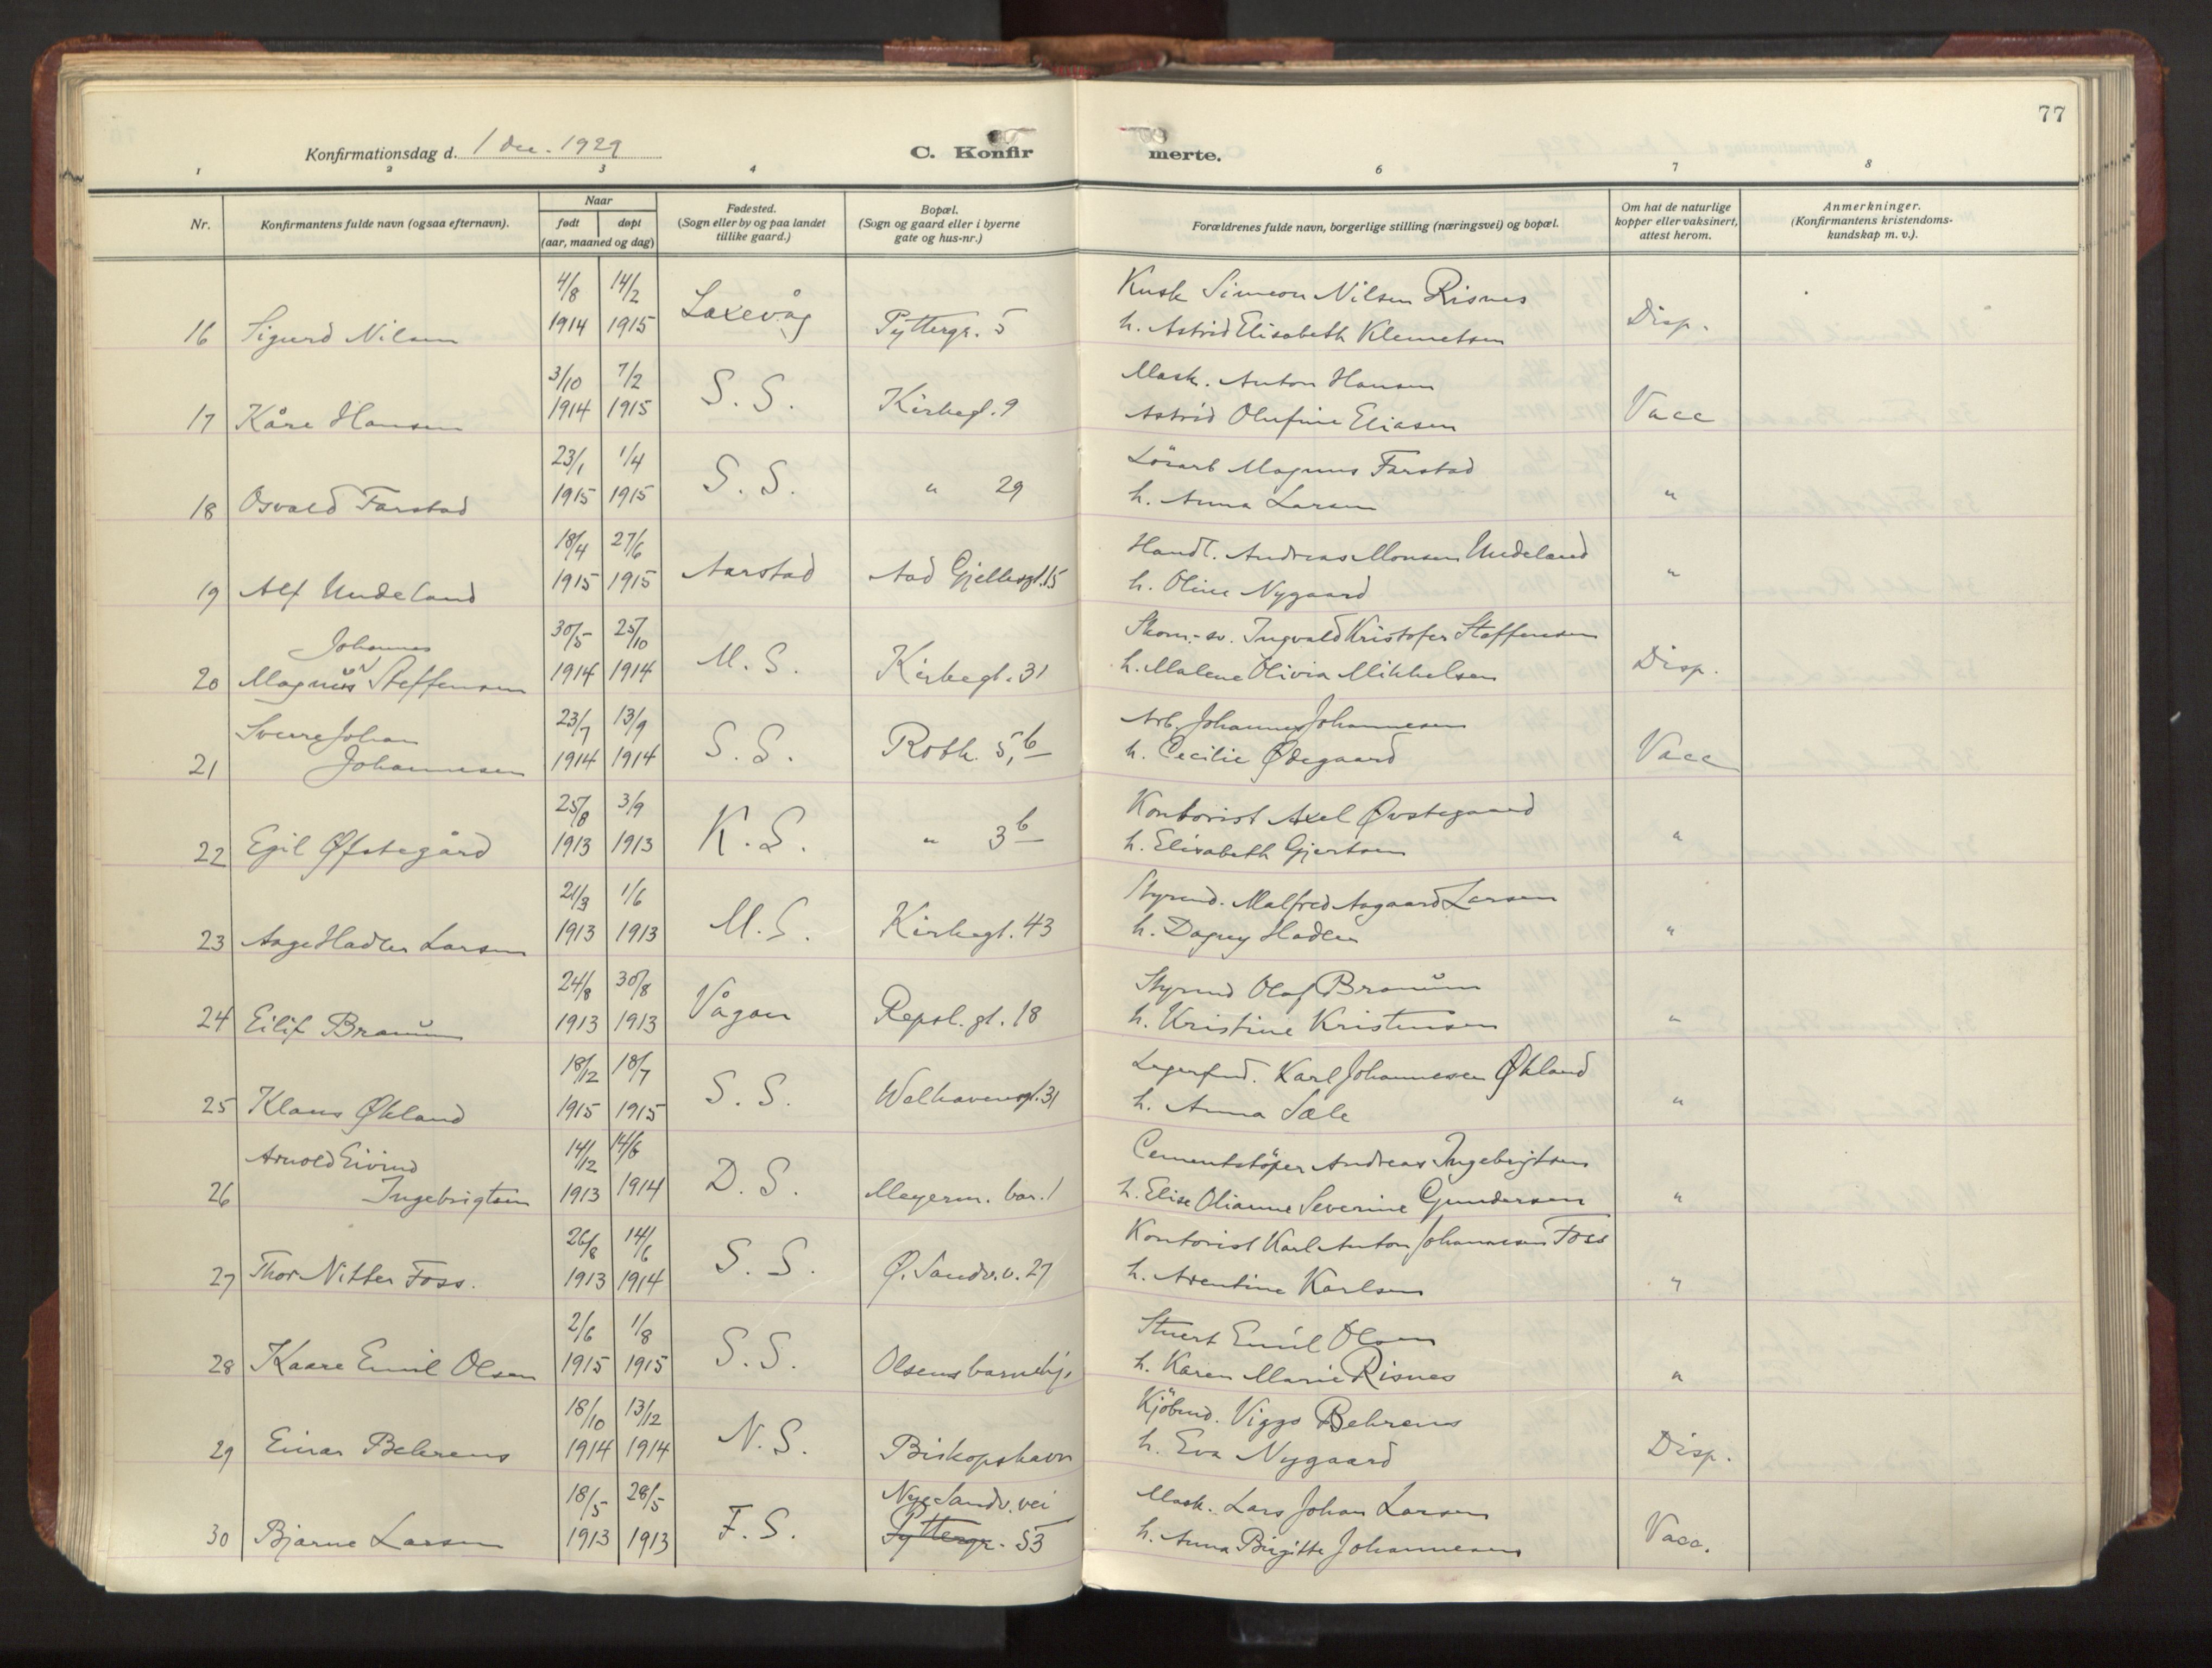 77
Konfirmationsdag d. 1 dec. 1929
C. Konfirmerte.
1 2 3 4 6 7 8
Nr.
Konfirmantens fulde navn (ogsaa efternavn).
Naar
født døpt
(aar, maaned og dag)
Fødested.
(Sogn eller by og paa landet
tillike gaard.)
Bopæl.
(Sogn og gaard eller i byerne
gate og hus-nr.)
Forældrenes fulde navn, borgerlige stilling (næringsvei) og bopæl.
Om hat de naturlige
kopper eller vaksinert,
attest herom.
Anmerkninger.
(Konfirmantens kristendoms-
kundskap m. v.).
4/8 14/2 Laxevåg Kusk Simeon Nilsen Risnes
16 Sigurd Nilsen 1914 1915 Pyttergr. 5 h. Astrid Elisabeth Klemetsen Disp.
3/10 7/2 S. S. Mask. Anton Hansen
17 Kåre Hansen 1914 1915 Kirkegt. 9 Astrid Olufine Eliasen Vacc
23/1 1/4 S. S. Lösarb Magnus Farstad
18 Osvald Farstad 1915 1915 " 29 h. Anna Larsen "
18/4 27/6 Aarstad Handl. Andreas Monsen Undeland
19 Alf Undeland 1915 1915 Aad Gjellesgt. 15 h. Oline Nygaard "
Johannes 30/5 25/10 M. S. Skom.-sv. Ingvald Kristofer Steffensen
20 Magnus Steffensen 1914 1914 Kirkegt. 31 h. Malene Olivia Mikkelsen Disp.
Sverre Johan 23/7 13/9 S. S. Arb. Johannes Johannesen
21 Johannesen 1914 1914 Rothk. 5, b h. Cecilie Ødegaard Vacc
25/8 3/9 K. S. Kontorist Axel Øvstegaard
22 Egil Øfstegård 1913 1913 " 3 b h. Elisabeth Gjertsen "
21/3 1/6 M. S. Styrmd. Malfred Aagaard Larsen
23 Aage Hadler Larsen 1913 1913 Kirkegt. 43 h. Dagny Hadler "
24/8 30/8 Vågan Styrmd Olaf Bramŭm
24 Eilif 1913 1913 Repsl. gt. 18 h. Kristine Kristensen "
18/12 18/7 S. S. Lagerfmd. Karl Johannesen Økland
25 Klaus Økland 1915 1915 Welhavensgt. 31 h. Anna Sæle "
Arnold Eivind 14/12 14/6 D. S. Cementstöper Andreas Ingebrigtsen
26 Ingebrigtsen 1913 1914 Meyerm. bar. 1 h. Elise Olianne Severine Gundersen "
26/8 14/6 S. S. Kontorist Karl Anton Johannesen Foss
27 Thor Nitter Foss. 1913 1914 Ø. Sandv. v. 27 h. Arentine Karlsen "
2/6 1/8 S. S. Stuert Emil Olsen
28 Kaare Emil Olsen 1915 1915 Olsens barnehj. h. Karen Marie Risnes "
18/10 13/12 N. S. Kjöbmd. Viggo Behrens
29 Einar Behrens 1914 1914 Biskopshavn h. Eva Nygaard Disp.
18/5 28/5 F. S. Nye Sandv. vei Mask. Lars Johan Larsen
30 Bjarne Larsen 1913 1913 Pyttergr. 53 h. Anna Birgitte Johannesen Vacc.